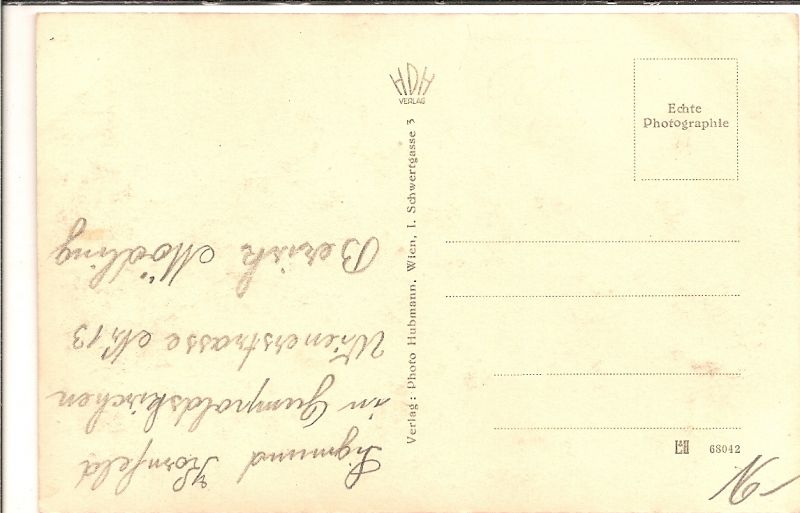 HDH
VERLAG
Echte
Photographie
Verlag: Photo Hubmann, Wien, I. Schwertgasse 3
68042
Sigmund Kornfeld
in Gumpoldskirchen
Wienerstrasse Nr. 13
Bezirk Mödling